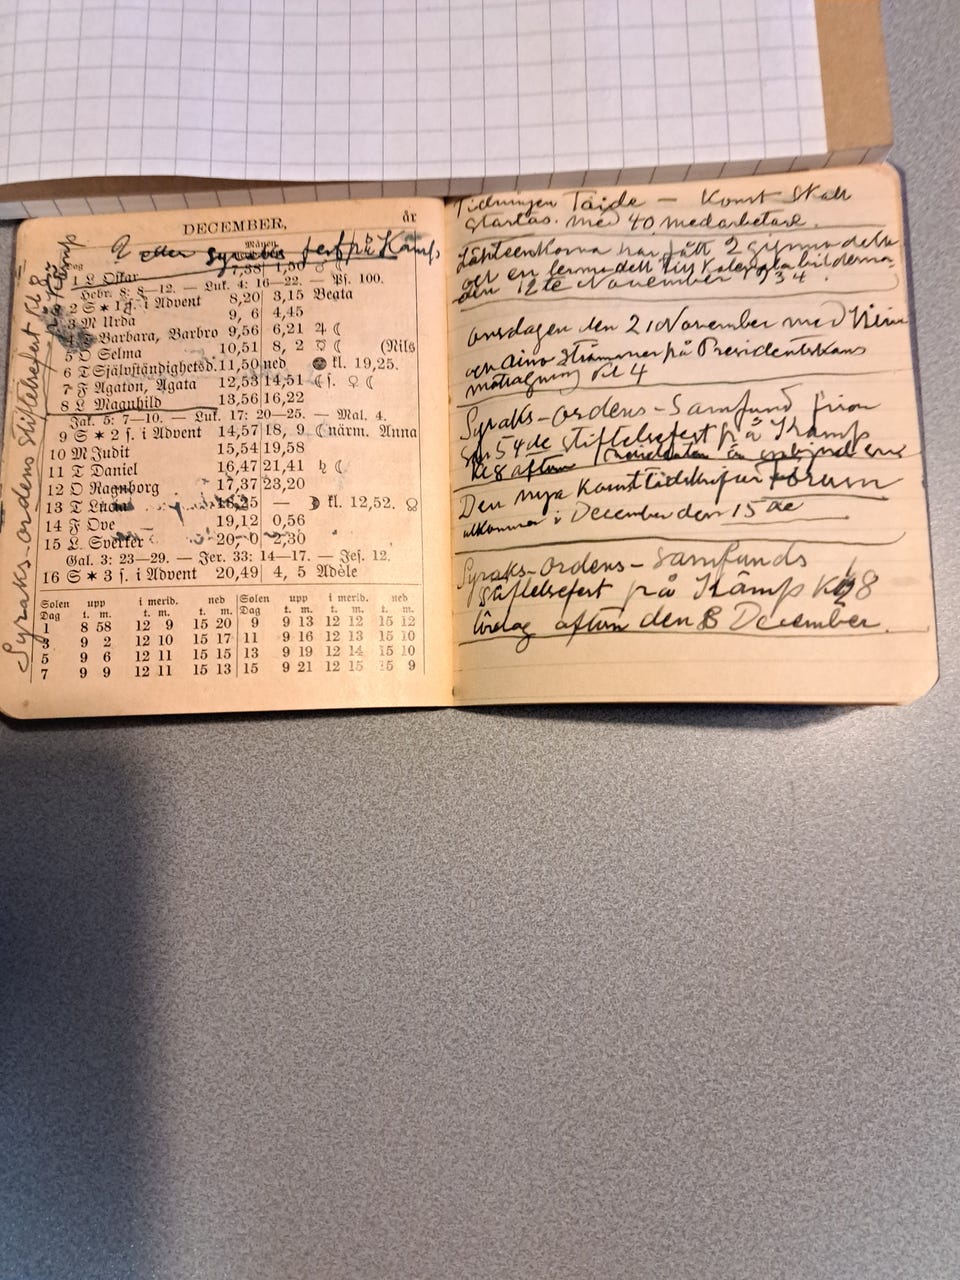 DECEMBER,
år
2 eller Syraks fest på Kämp
Syraks-ordens Stiftelsefest Kl 8
på Kämp
Månen
1 L Oskar 7,38 1,50
Hebr. 8: 8—12. — Luk. 4: 16—22. — Ps. 100.
2 S * 1 s. i Advent 8,20 3,15 Beata
3 M Urda 9, 6 4,45
4 T Barbara, Barbro 9,56 6,21 ♃ ☾
5 O Selma 10,51 8, 2 ☿ ☾ (Nils
6 T Självständighetsd. 11,50 ned ● kl. 19,25.
7 F Agaton, Agata 12,53 14,51 ☾ s. ♀ ☾
8 L Magnhild 13,56 16,22
Jak. 5: 7—10. — Luk. 17: 20—25. — Mal. 4.
9 S * 2 s. i Advent 14,57 18, 9 ☾ närm. Anna
10 M Judit 15,54 19,58
11 T Daniel 16,47 21,41 ♄ ☾
12 O Ragnborg 17,37 23,20
13 T Lucia 18,25 — ☽ kl. 12,52. ♀
14 F Ove 19,12 0,56
15 L Sverker 20, 0 2,30
Gal. 3: 23—29. — Jer. 33: 14—17. — Jes. 12.
16 S * 3 s. i Advent 20,49 4, 5 Adèle
Solen upp i merid. ned Solen upp i merid. ned
Dag t. m. t. m. t. m. Dag t. m. t. m. t. m.
1 8 58 12 9 15 20 9 9 13 12 12 15 12
3 9 2 12 10 15 17 11 9 16 12 13 15 10
5 9 6 12 11 15 15 13 9 19 12 14 15 10
7 9 9 12 11 15 13 15 9 21 12 15 15 9
Tidningen Taide — Konst Skall
startas. med 40 medarbetare.
Lähteenkorva har fått 2
och en till
den 12te November 1934
onsdagen den 21 November med
och Aino Strömmer på Presidentskans
mottagning Kl 4
Syraks-ordens-Samfund firar
sin 54de stiftelsefest på Kämp
Kl 8 afton Presidenten är
Den nya Konsttidskriften Forum
utkommer i December den 15 de
Syraks-Ordens-Samfunds
Stiftelsefest på Kämp Kl 8
lördag afton den 8 December.